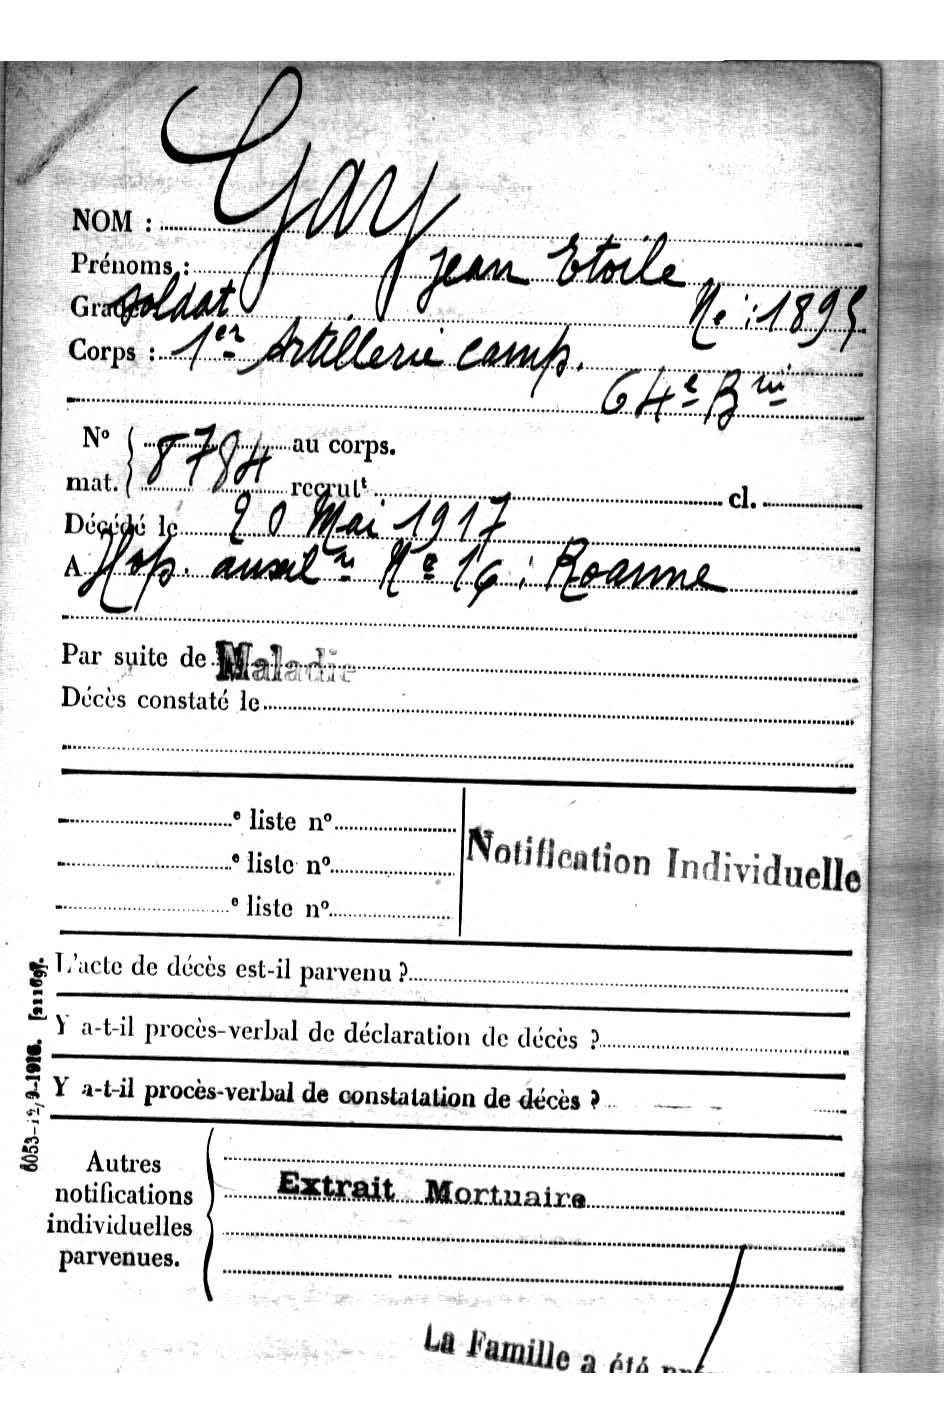 NOM : Gay
Prénoms : Jean Etoile
Grade soldat Né : 1895
Corps : 1er Artillerie camp.
64e Brie
N° 8784 au corps.
mat. recrult cl.
Décédé le 20 Mai 1917
A Hop. auxil re No 16 : Roanne
Par suite de Maladie
Décès constaté le
e liste n°
e liste n°
e liste n°
Notification Individuelle
L'acte de décès est-il parvenu ?
Y a-t-il procès-verbal de déclaration de décès ?
Y a-t-il procès-verbal de constatation de décès ?
6053-12/9-1916. [21169].
Autres
notifications
individuelles
parvenues.
Extrait Mortuaire
La Famille a été